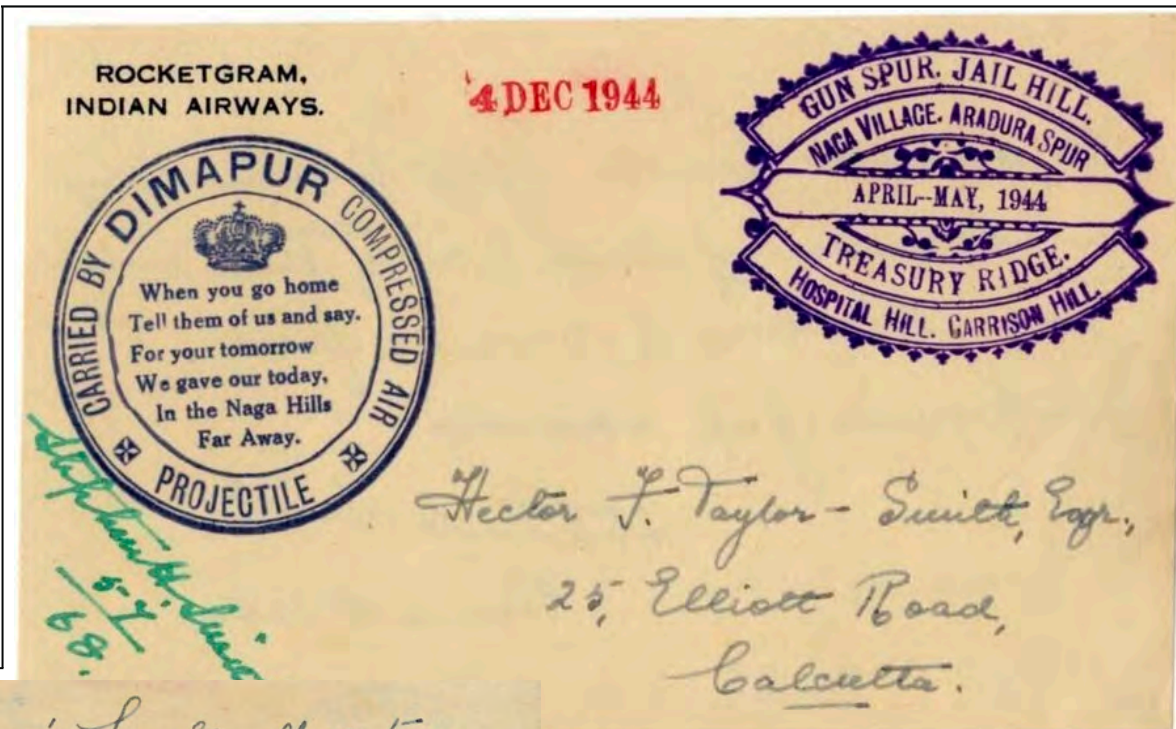 ROCKETGRAM,
INDIAN AIRWAYS.
4 DEC 1944
GUN SPUR. JAIL HILL.
NAGA VILLAGE. ARADURA SPUR
APRIL--MAY, 1944
TREASURY RIDGE.
HOSPITAL HILL. GARRISON HILL.
CARRIED BY DIMAPUR COMPRESSED AIR
When you go home
Tell them of us and say.
For your tomorrow
We gave our today,
In the Naga Hills
Far Away.
PROJECTILE
Stephen H. Smith
57
68.
Hector F. Taylor - Smith, Esqr.,
25, Elliott Road,
Calcutta.